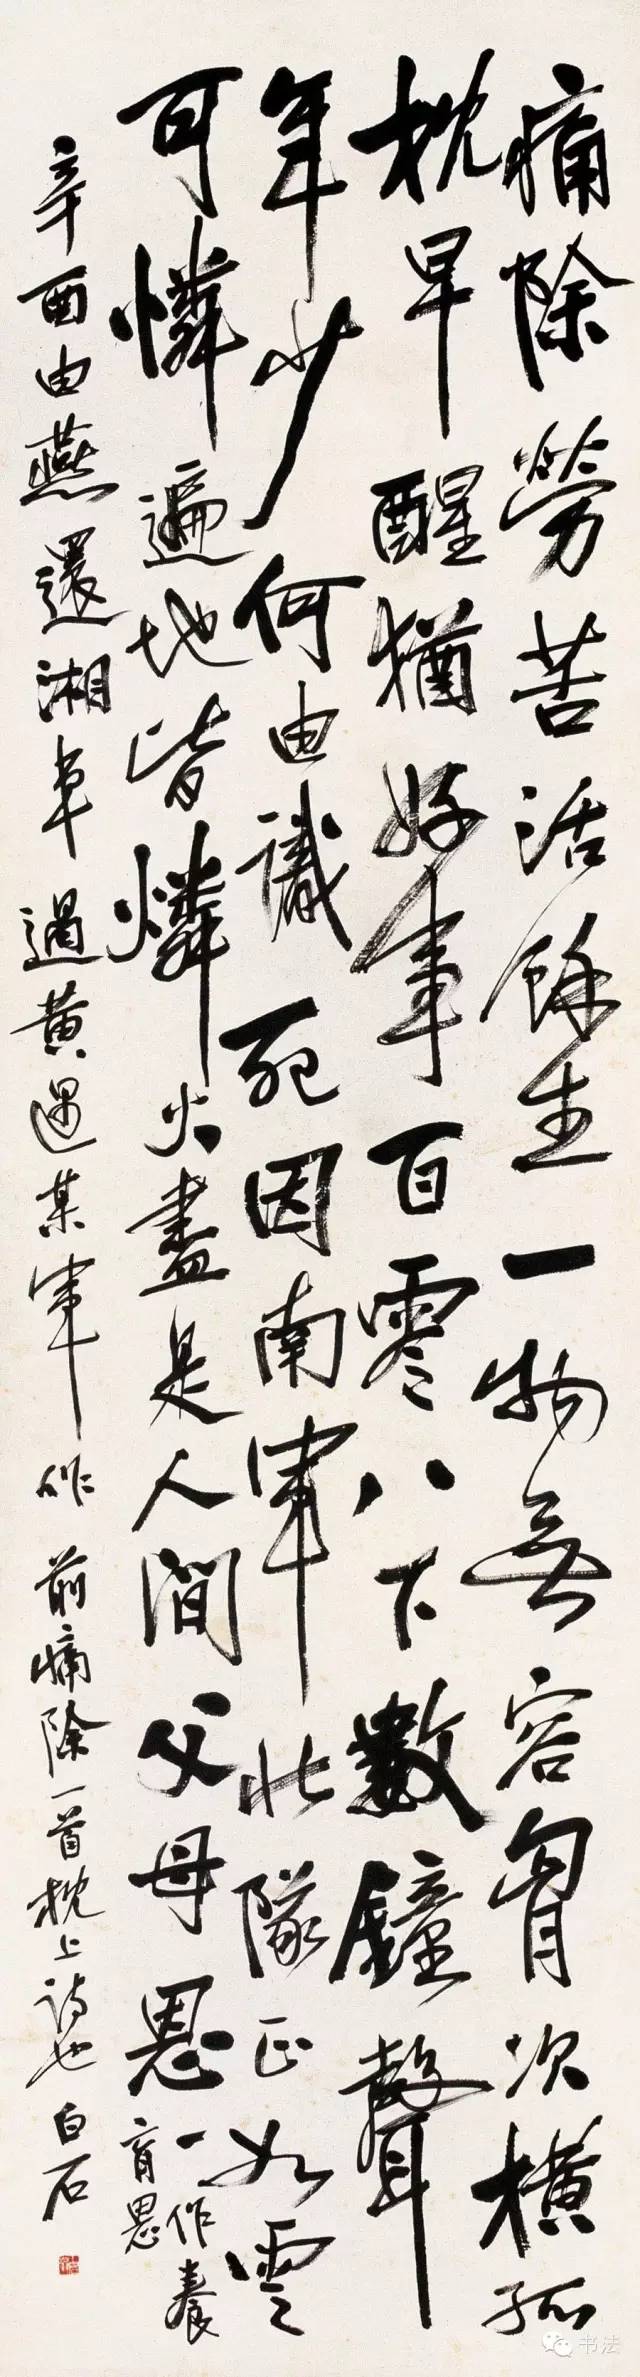 痛除勞苦活餘生一物無容胷次橫孤
枕早醒猶好事百零八下數鐘聲
年少何由識死因南軍北隊正如雲
可憐遍地皆燐火盡是人間父母恩
一作養
育恩
辛酉由燕還湘車過黃遇某軍作前痛除一首枕上詩也白石
书法